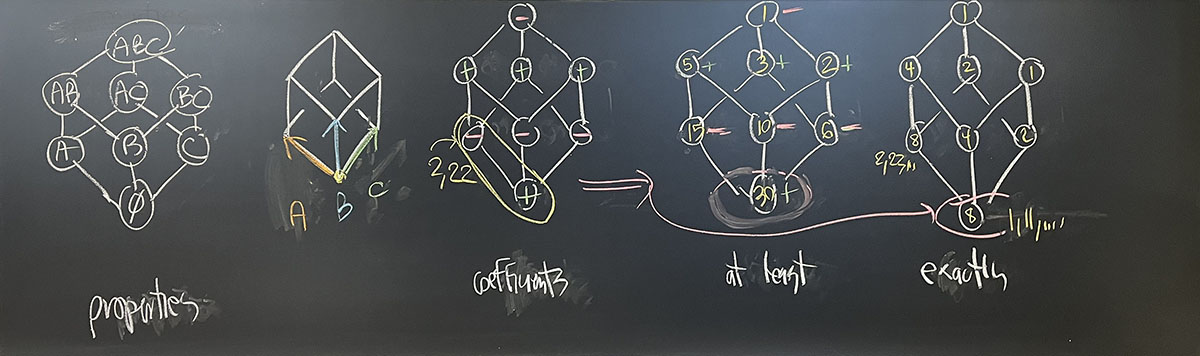 ABC
AB AC BC
A B C
∅
properties
A B C
-
+ + +
- - -
+
2,22
coefficients
1 -
5 + 3 + 2 +
15 - 10 - 6 -
30 +
at least
1
4 2 1
8 4 2
2,22,...
8
1,11,...
exactly